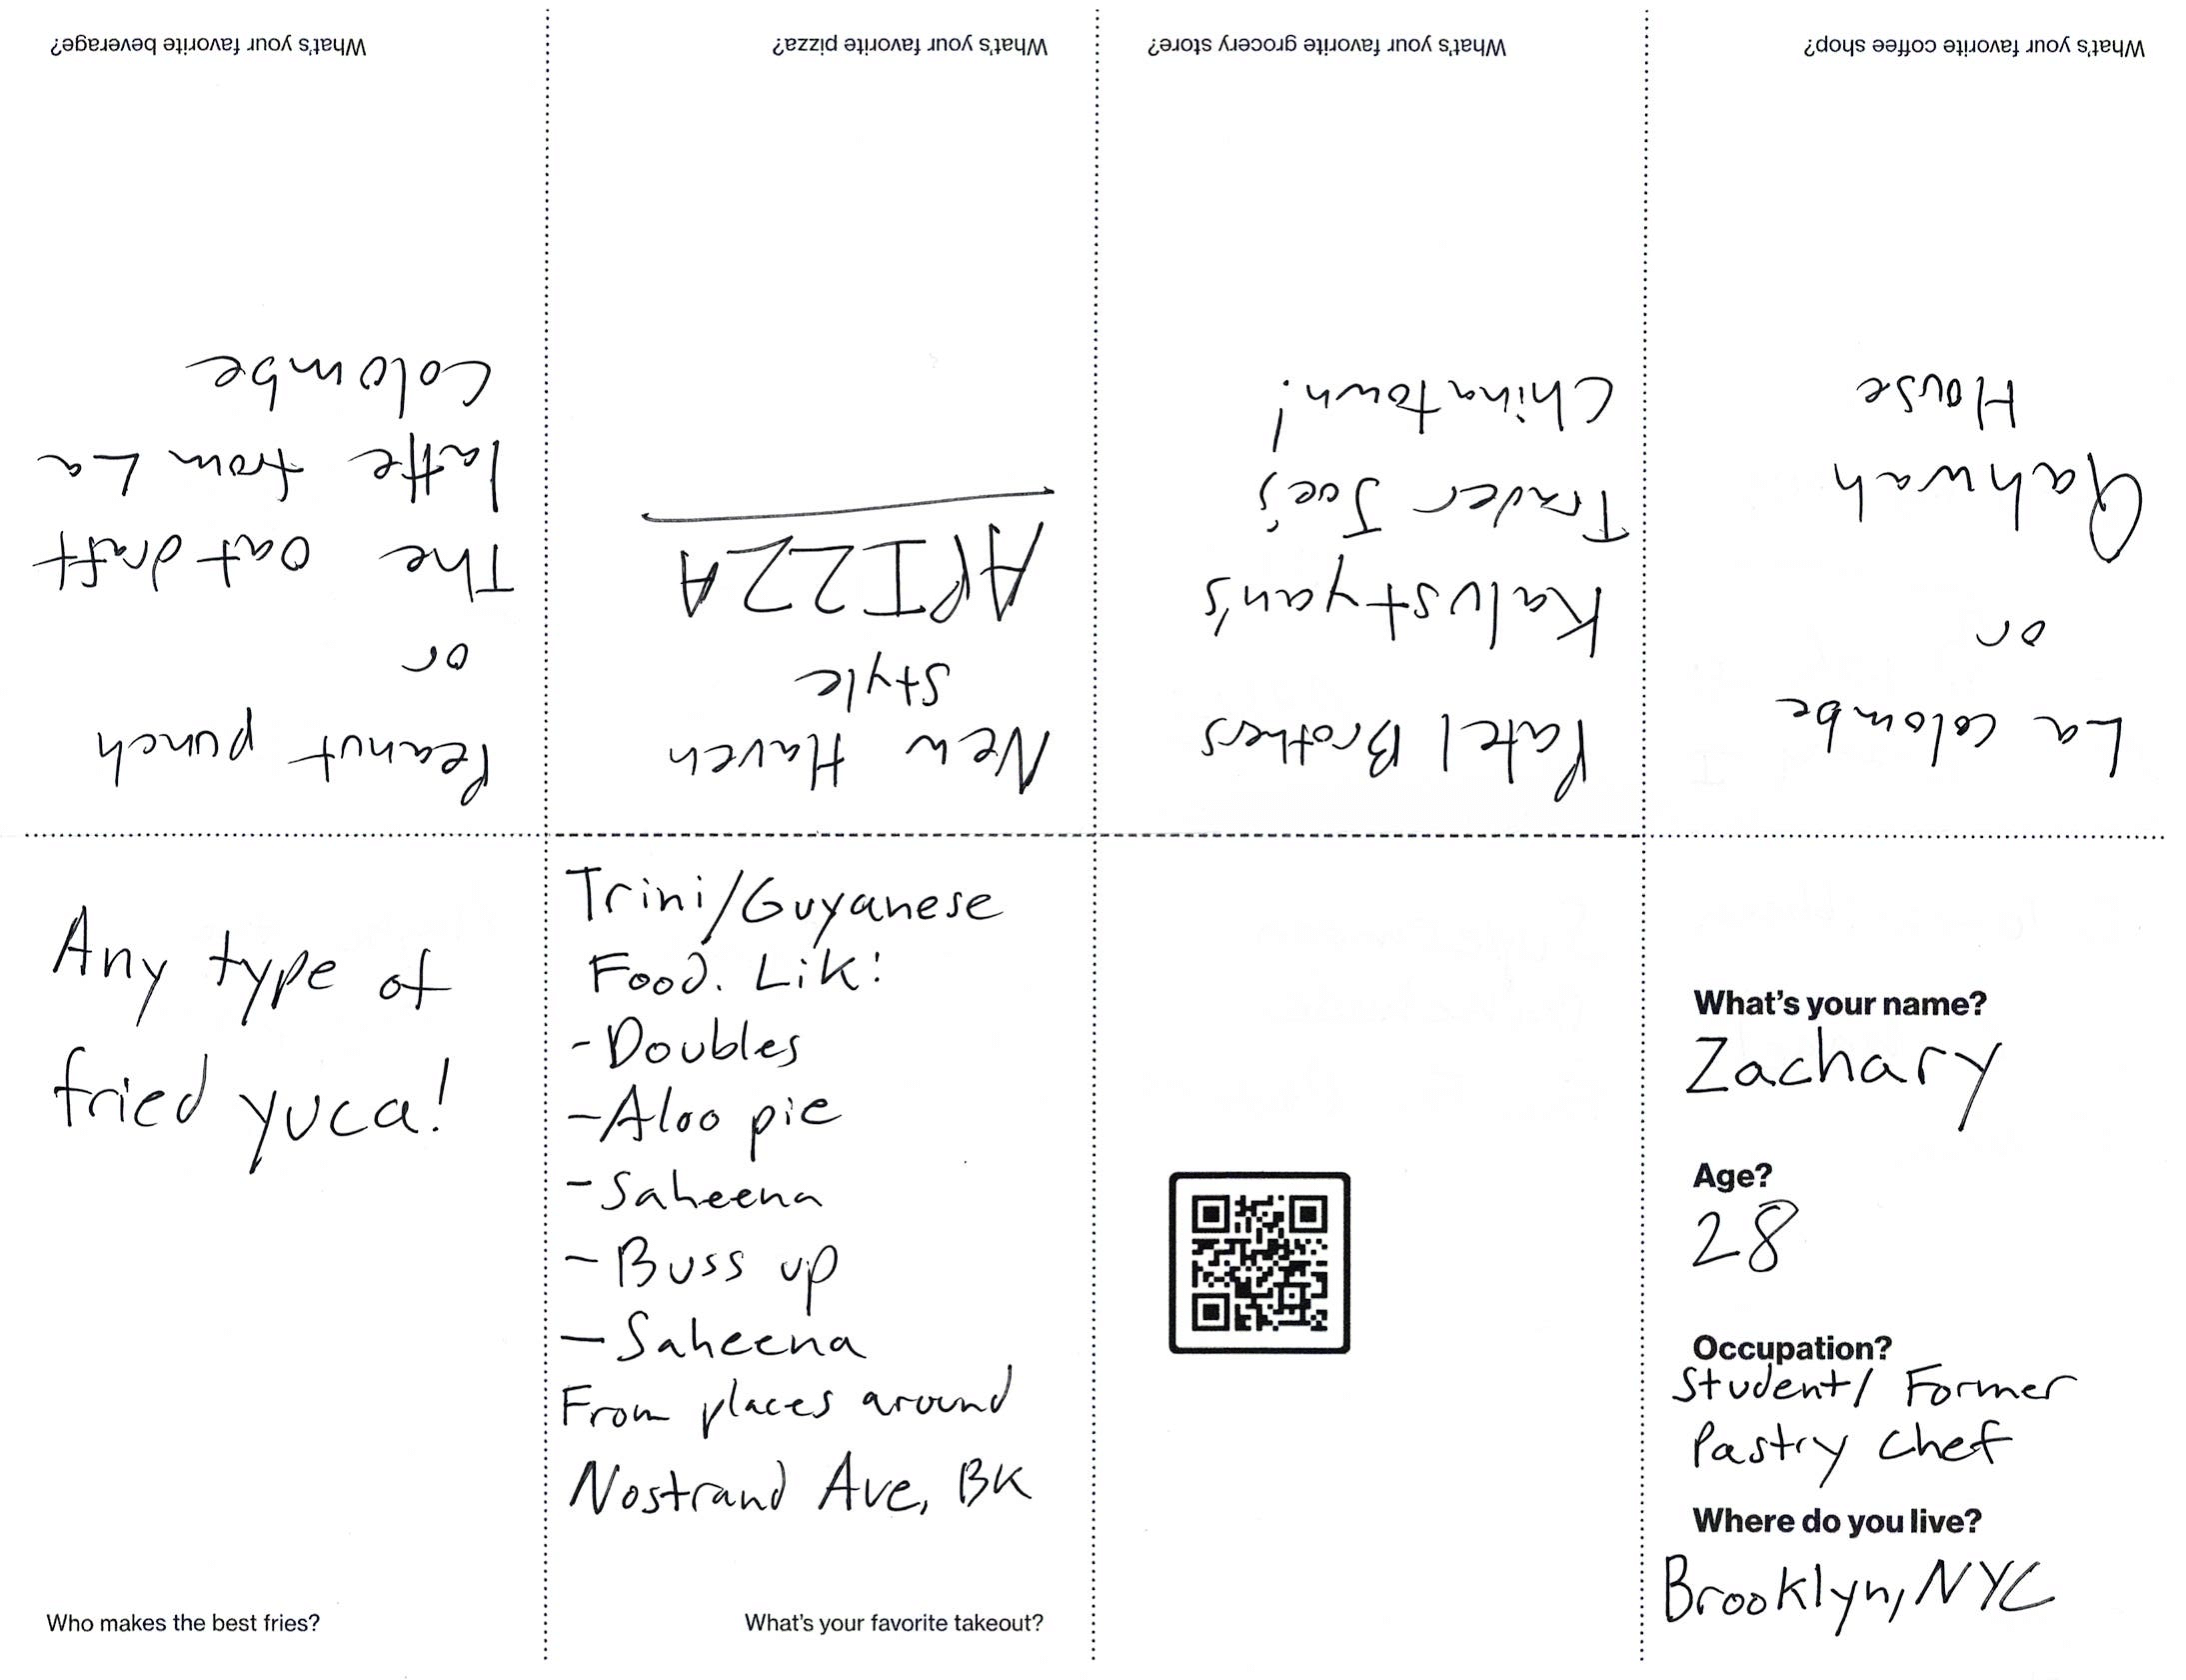 What's your favorite coffee shop?
La colombe
or
Qahwah
House
What's your favorite grocery store?
Patel Brothers
Kalustyan's
Trader Joe's
Chinatown!
What's your favorite pizza?
New Haven
style
APIZZA
What's your favorite beverage?
Peanut punch
or
The oat draft
latte from La
Colombe
Any type of
fried yuca!
Who makes the best fries?
Trini/Guyanese
Food. Lik:
-Doubles
-Aloo pie
-Saheena
-Buss up
-Saheena
From places around
Nostrand Ave, BK
What's your favorite takeout?
What's your name?
Zachary
Age?
28
Occupation?
Student/ Former
Pastry chef
Where do you live?
Brooklyn, NYC